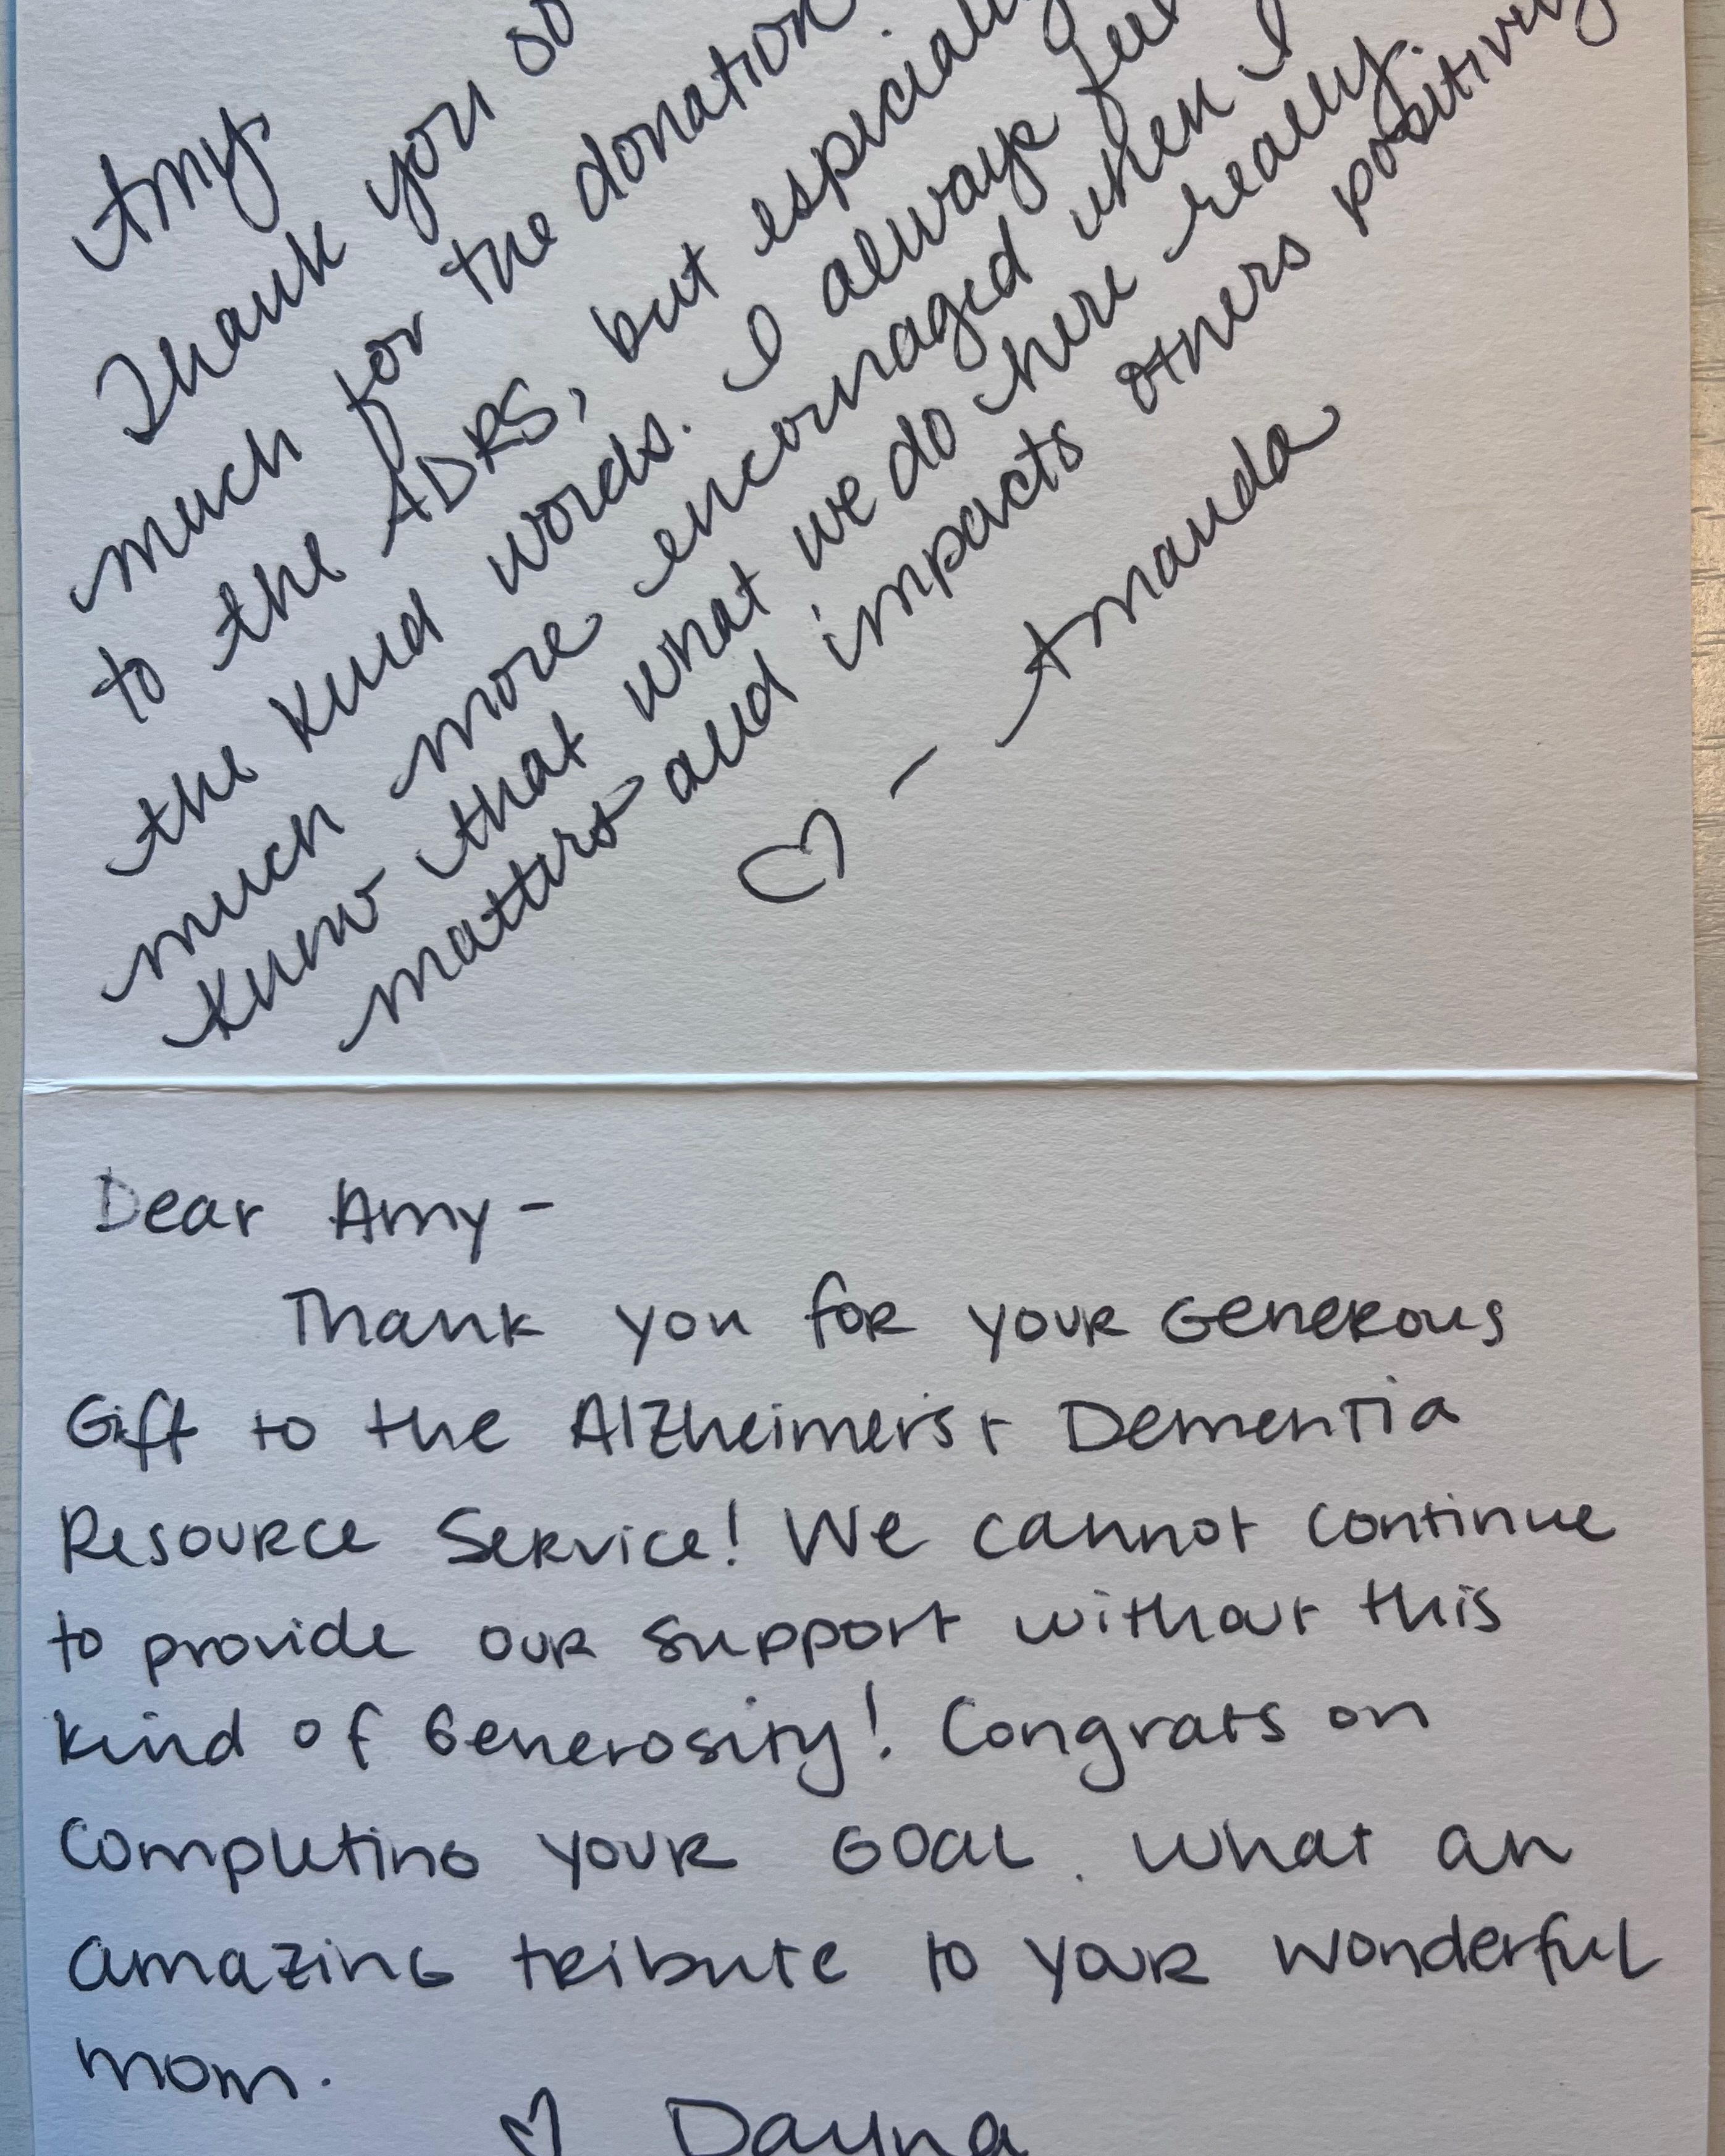 Amy.
Thank you so
much for the donation
to the ADRS, but especially
the kind words. I always feel
much more encouraged when I
know that what we do here really
matters and impacts others positively.
♡ - Amanda
Dear Amy-
Thank you for your Generous
Gift to the Alzheimers + Dementia
Resource Service! We cannot continue
to provide our support without this
kind of Generosity! Congrats on
Completing your Goal. What an
amazing tribute to your wonderful
mom.
♡ Dayna